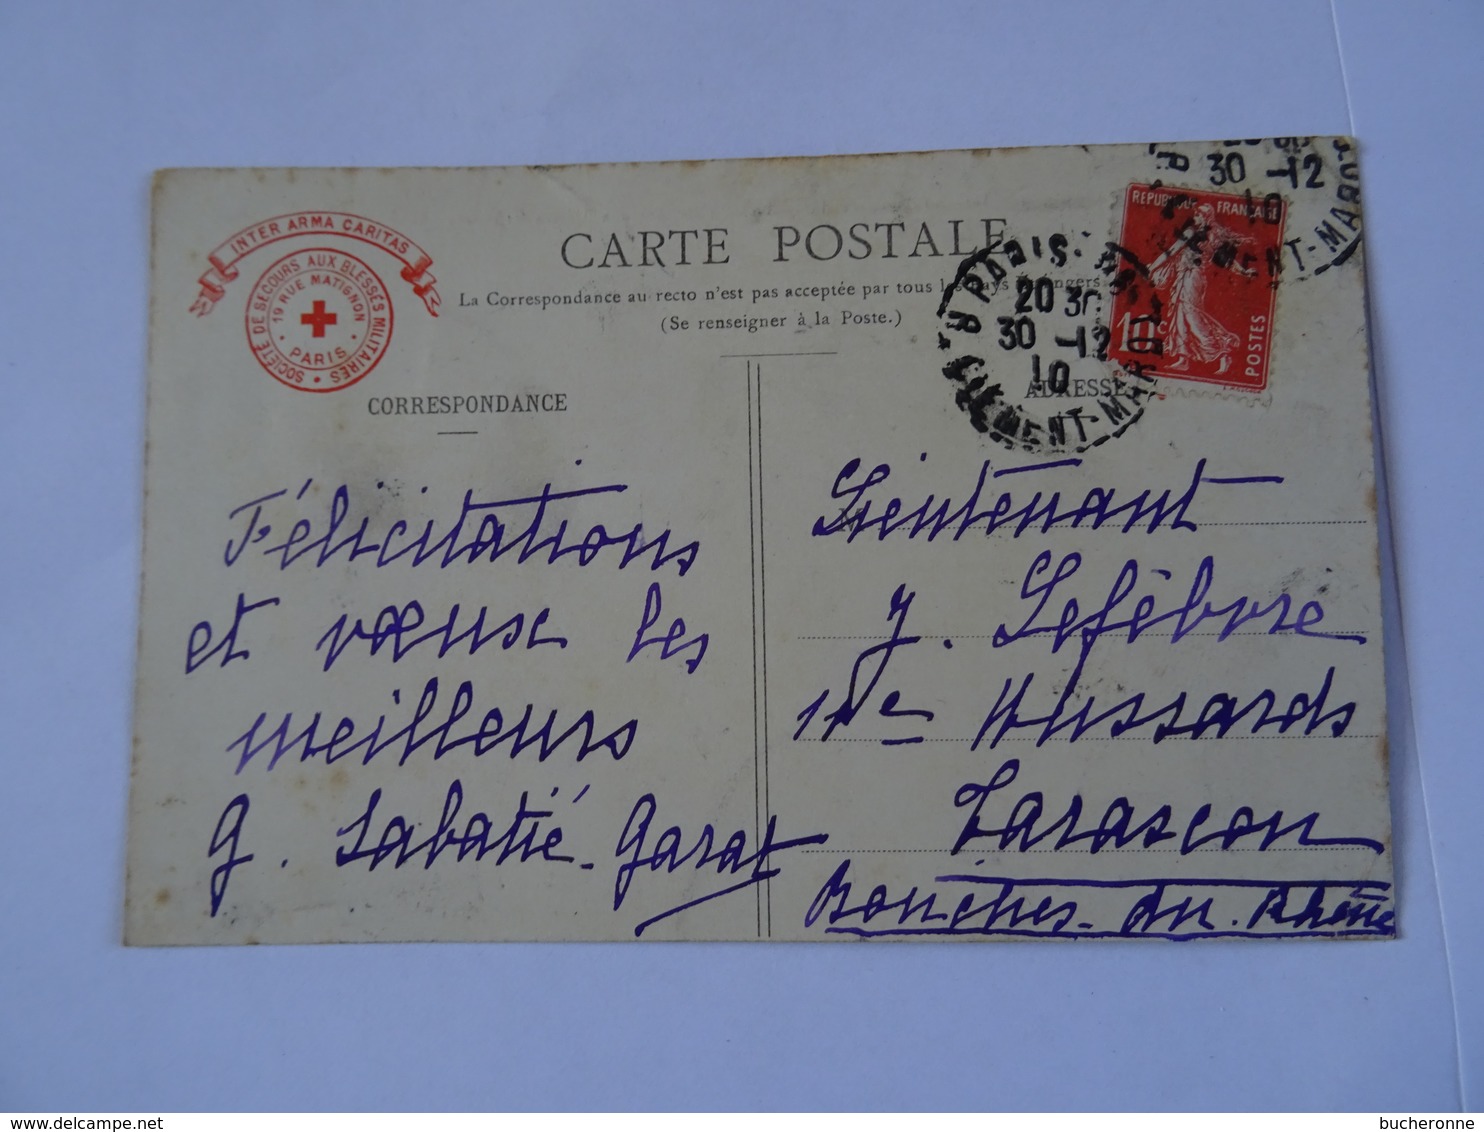 INTER ARMA CARITAS
SOCIÉTÉ DE SECOURS AUX BLESSÉS MILITAIRES
19 RUE MATIGNON
PARIS
CARTE POSTALE
La Correspondance au recto n'est pas acceptée par tous les pays étrangers
(Se renseigner à la Poste.)
CORRESPONDANCE
ADRESSE
REPUBLIQUE FRANÇAISE
10 c
POSTES
PARIS
20 30
30 -12
10
R. CLEMENT-MAROT
30 -12
10
R. CLEMENT-MAROT
Félicitations
et vœux les
meilleurs
G. Sabatié-Garat
Lieutenant
J. Lefèbvre
11e Hussards
Tarascon
Bouches-du-Rhône
bucheronne